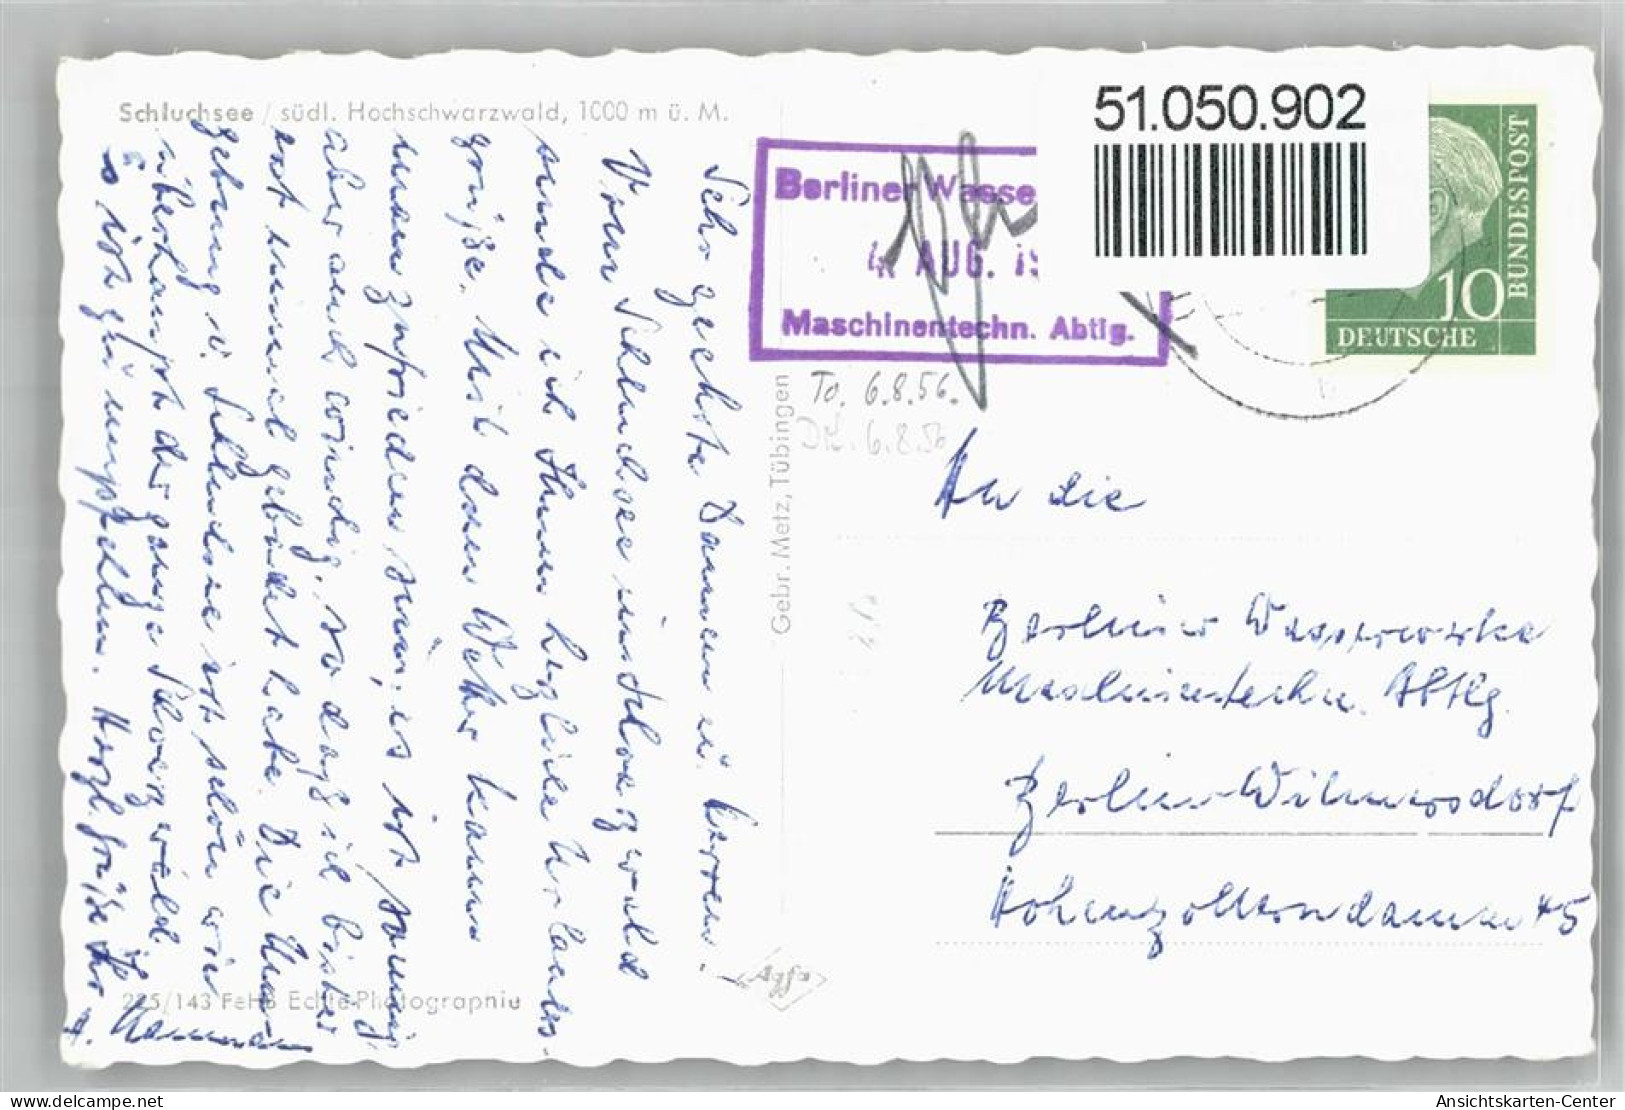 Schluchsee / südl. Hochschwarzwald, 1000 m ü. M.
Sehr geehrte Damen u. Herren.
Vom Schluchsee im Schwarzwald
sende ich Ihnen herzliche Urlaubs-
grüße. Mit dem Wetter kann
man zufrieden sein, es ist sonnig
aber auch windig, so dass ich bisher
erst einmal gebadet habe. Die Um
gebung v. Schluchsee ist schön wie
überhaupt der ganze Schwarzwald.
Es ist zu empfehlen. Herzl. Grüße Ihr
225/143 FeHB Echte Photographie
Gebr. Metz, Tübingen
Agfa
Berliner Wasse
4. AUG. 19
Maschinentechn. Abtlg.
To. 6.8.56.
6.8.56
51.050.902
10
DEUTSCHE
BUNDESPOST
An die
Berliner Wasserwerke
Maschinentechn. Abtlg.
Berlin-Wilmersdorf
Hohenzollerndamm 45
Ansichtskarten-Center
delcampe.net